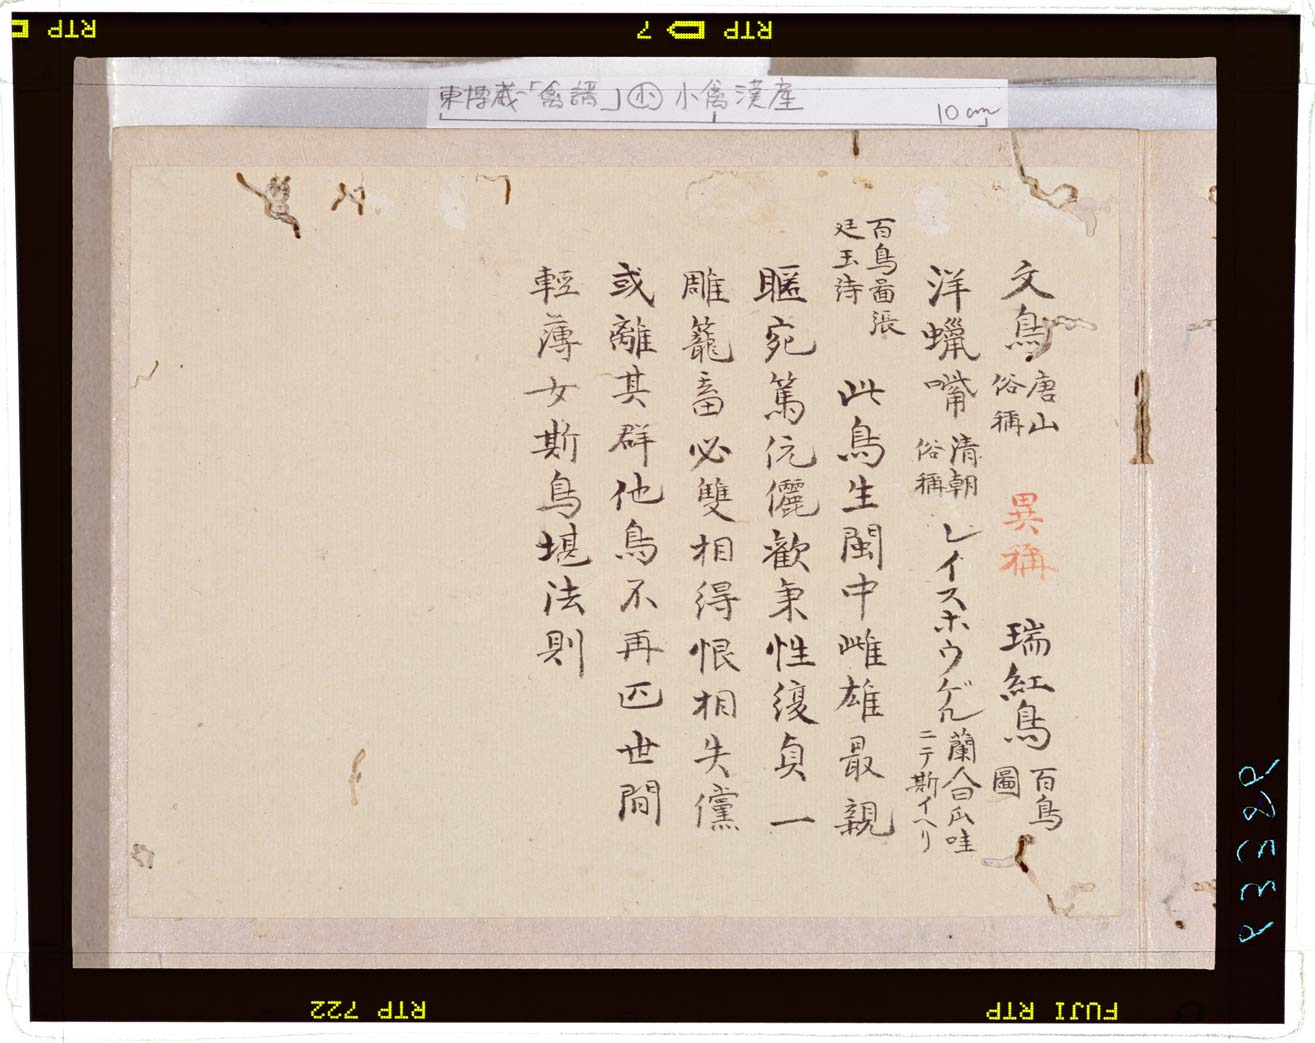 RTP
7
RTP
東博蔵「禽譜」㊥ 小禽漢産
10cm
文鳥 唐山俗稱 異稱 瑞紅鳥 百鳥圖
洋蠟嘴 清朝俗稱 レイスホウゲル 蘭人呱哇ニテ斯イヘリ
百鳥圖張廷玉詩 此鳥生閩中雌雄最親
暱宛篤伉儷歡秉性復貞一
雕籠畜必雙相得恨相失儻
或離其群他鳥不再匹世間
輕薄女斯鳥堪法則
RTP 722
FUJI RTP